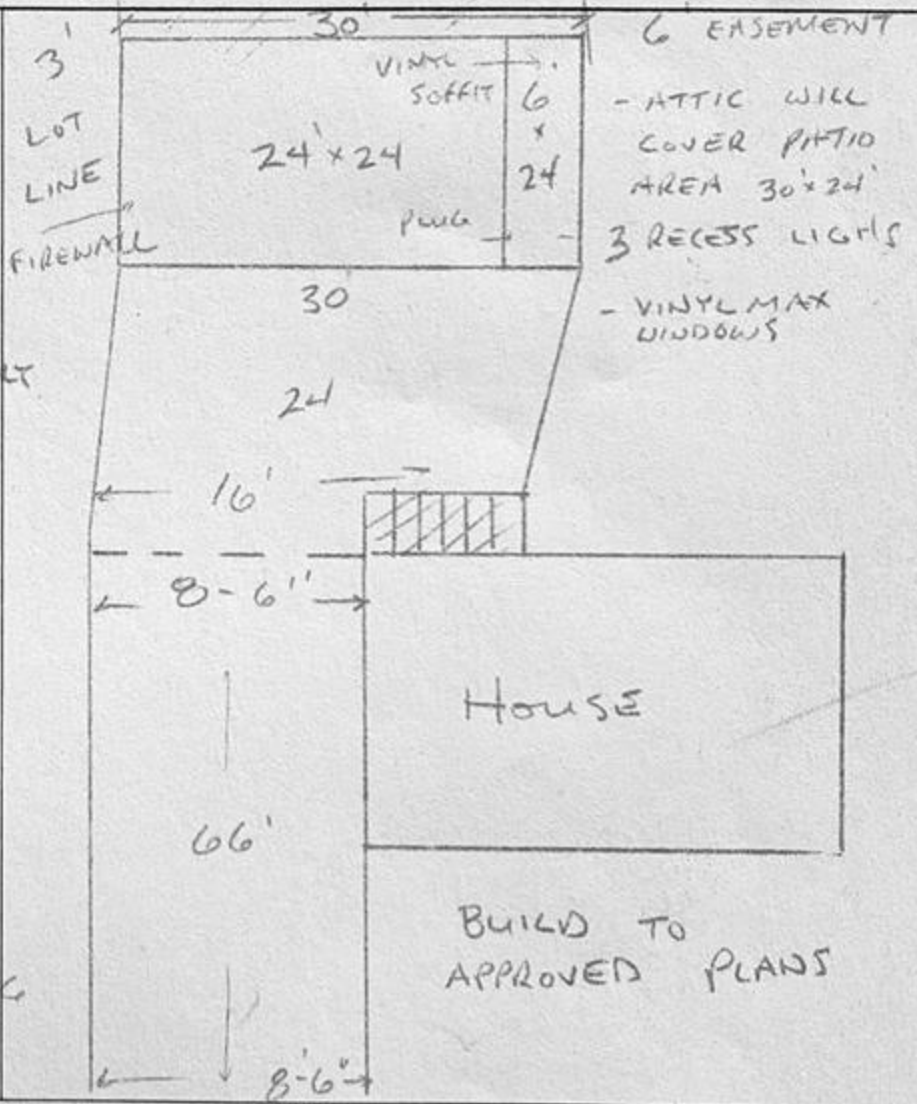 30
3'
LOT
LINE
FIREWALL
VINYL
SOFFIT
24' x 24
6
x
24
PLUG
6 EASEMENT
- ATTIC WILL
COVER PATIO
AREA 30' x 24'
3 RECESS LIGHTS
- VINYLMAX
WINDOWS
30
24
16'
8-6"
HOUSE
66'
BUILD TO
APPROVED PLANS
8'-6"